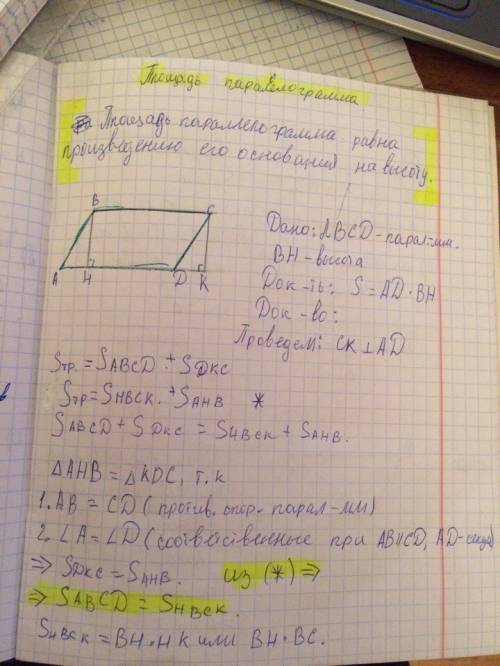 Площадь параллелограмма
Площадь параллелограмма равна
произведению его основания на высоту.
B
C
A
H
D
K
Дано: ABCD - парал-мм.
BH - высота
Док-ть: S = AD · BH
Док-во:
Проведем: CK ⊥ AD
Sтр. = SABCD + SDKC
Sтр = SHBCK + SAHB *
SABCD + SDKC = SHBCK + SAHB.
△AHB = △KDC, т.к
1. AB = CD (против. стор. парал-мм)
2. ∠A = ∠D (соответственные при AB∥CD, AD-секущ)
⇒ SDKC = SAHB. из (*) ⇒
⇒ SABCD = SHBCK.
SHBCK = BH · HK или BH · BC.